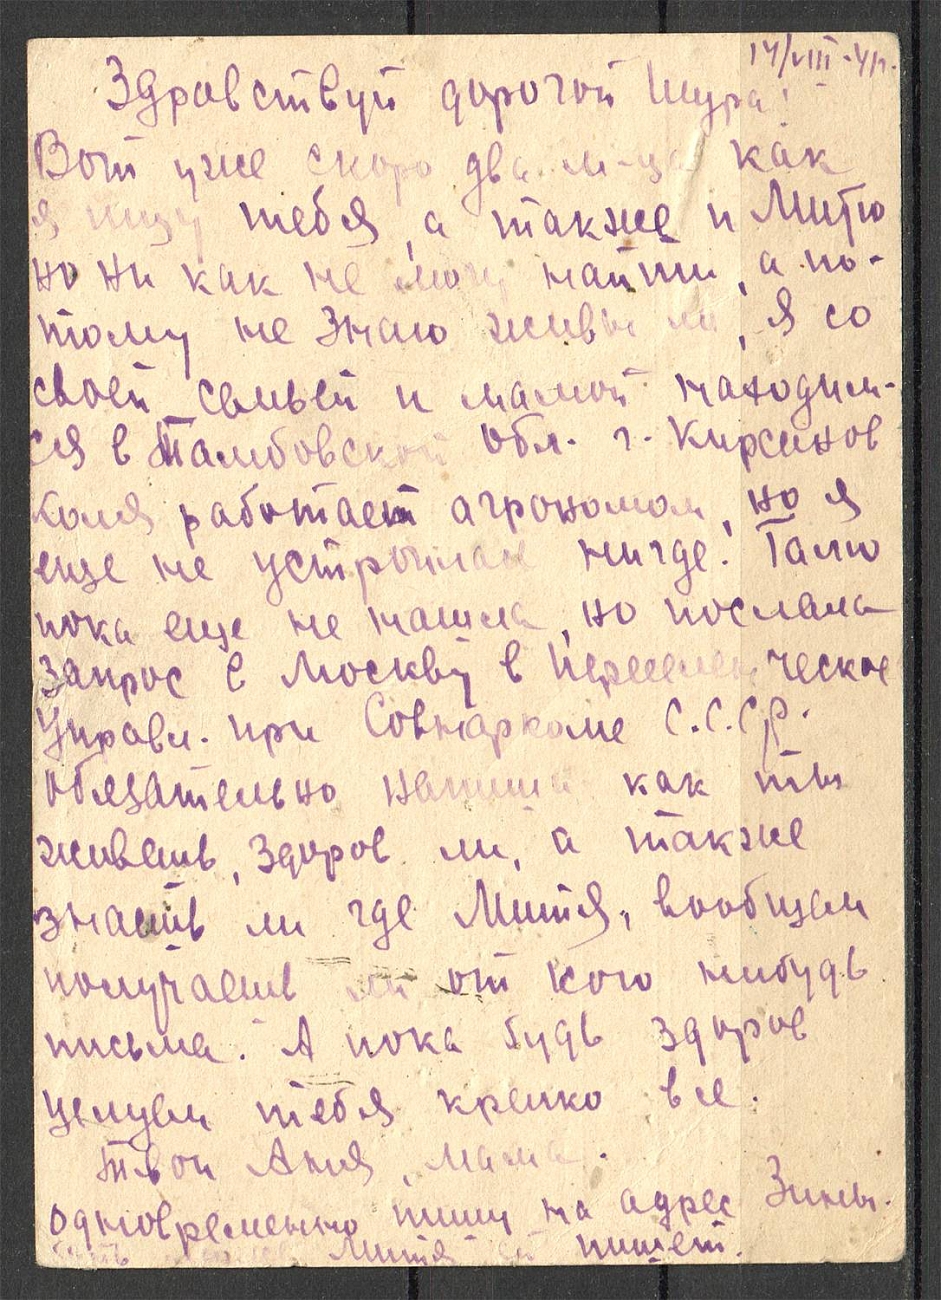 14/VIII-41г.
Здравствуй дорогой Шура!
Вот уже скоро два м-ца как
я ищу тебя, а также и Митю
но ни как не могу найти, а по-
тому не знаю живы ли, я со
своей семьей и мамой находим-
ся в Тамбовской обл. г. Кирсанов
Коля работает агрономом, но я
еще не устроилась нигде. Галю
пока еще не нашла, но послала
запрос в Москву в Переселенческое
Управл. при Совнаркоме С.С.С.Р.
Обязательно напиши как ты
живешь, здоров ли, а также
знаешь ли где Митя, вообщем
получаешь ли от кого нибудь
письма. А пока будь здоров
целуем тебя крепко все.
Твои Аня, мама.
одновременно пишу на адрес Зины.
Митя ей пишет.